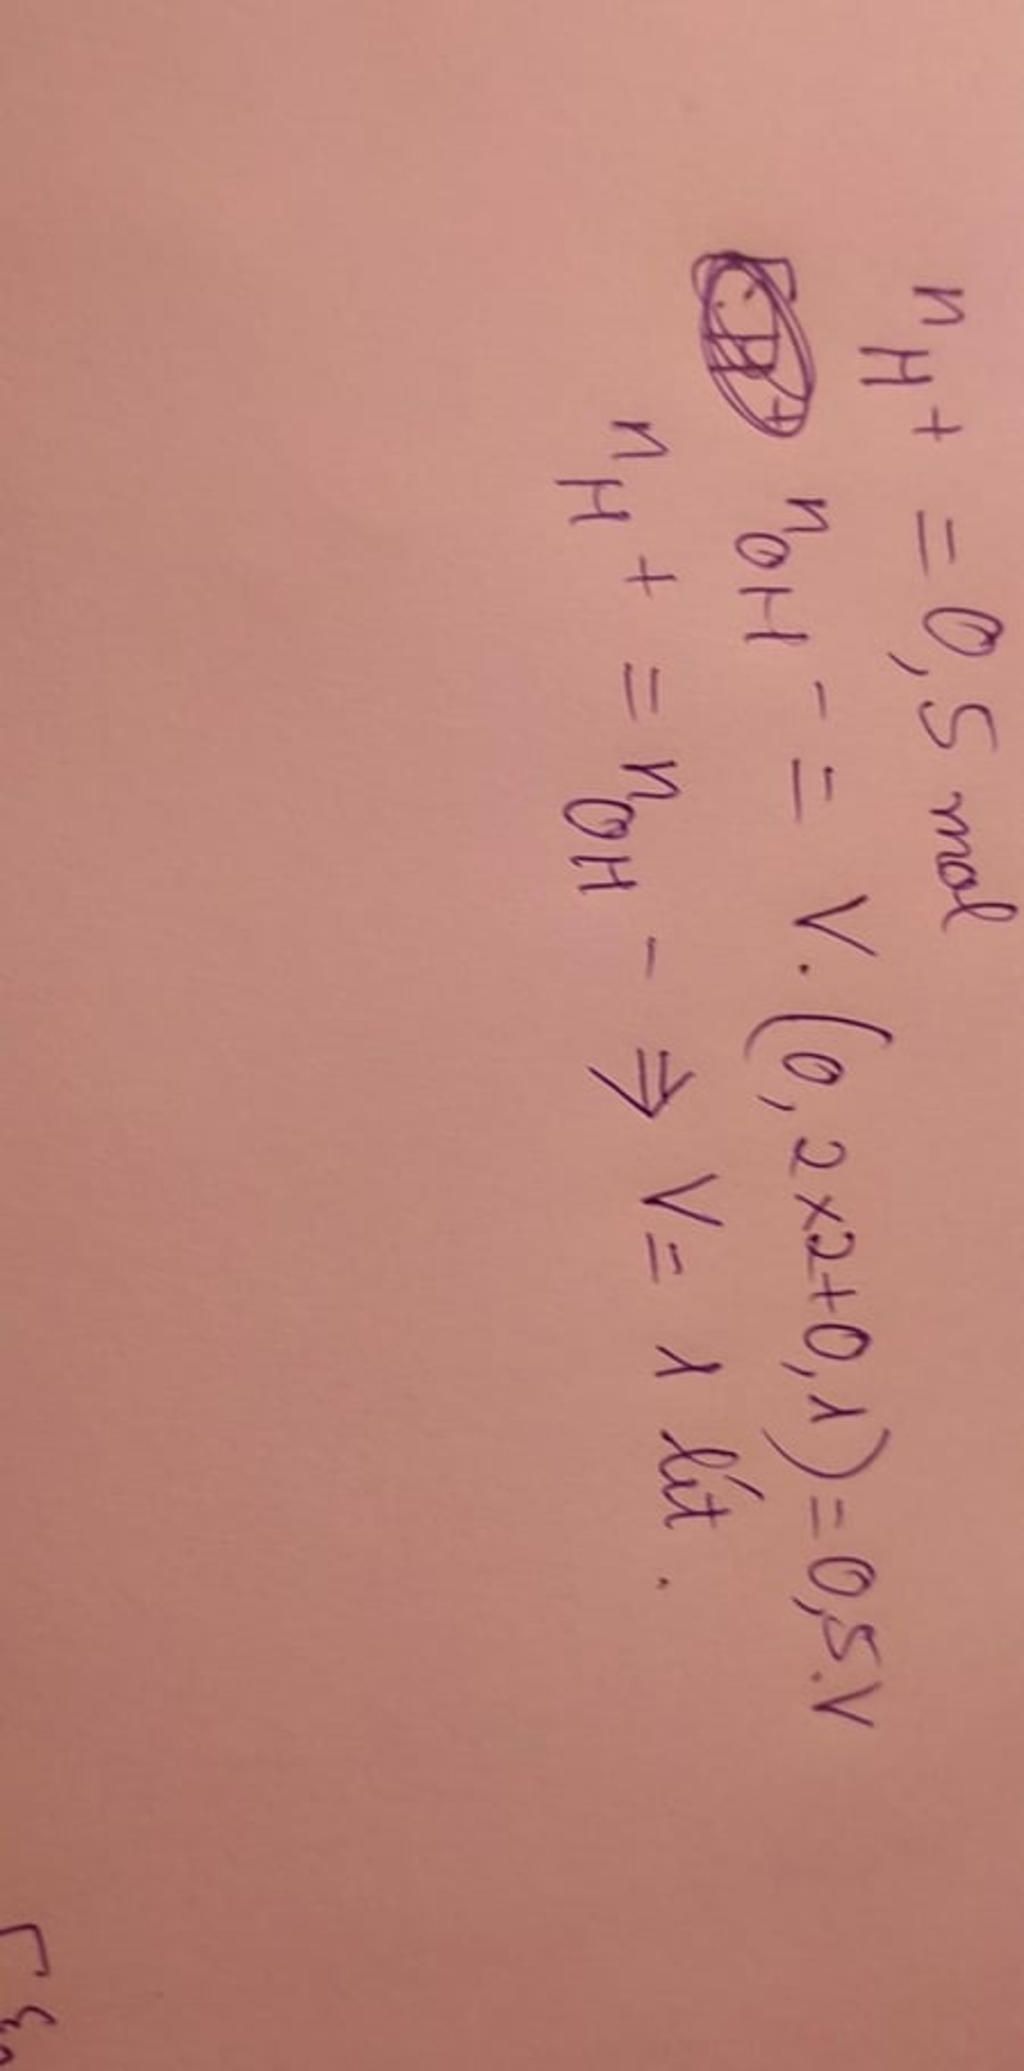 nH+ = 0,5 mol
nOH- = V.(0,2x2+0,1) = 0,5.V
nH+ = nOH- ⇒ V = 1 lít.